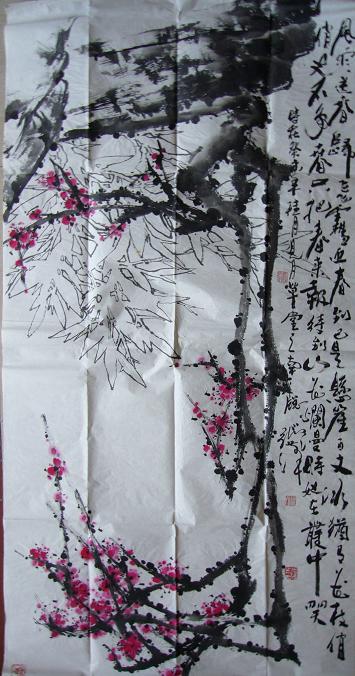 風雨送春歸飛雪迎春到已是懸崖百丈冰猶有花枝俏
俏也不爭春只把春來報待到山花爛漫時她在叢中笑
癸未年